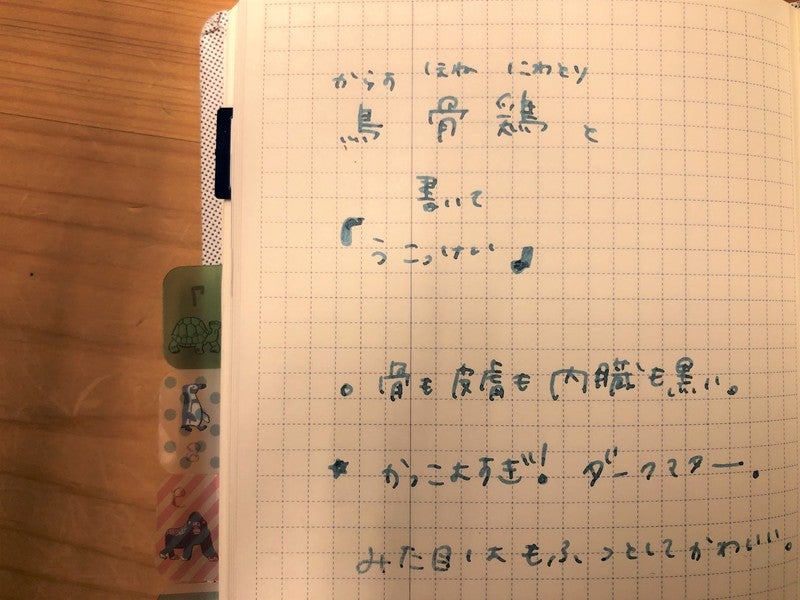 からす ほね にわとり
烏 骨 鶏 と
書いて
『うこっけい』
・骨も皮膚も内臓も黒い。
★ かっこよすぎ! ダークマター。
みた目はもふっとしてかわいい。
7
8
9